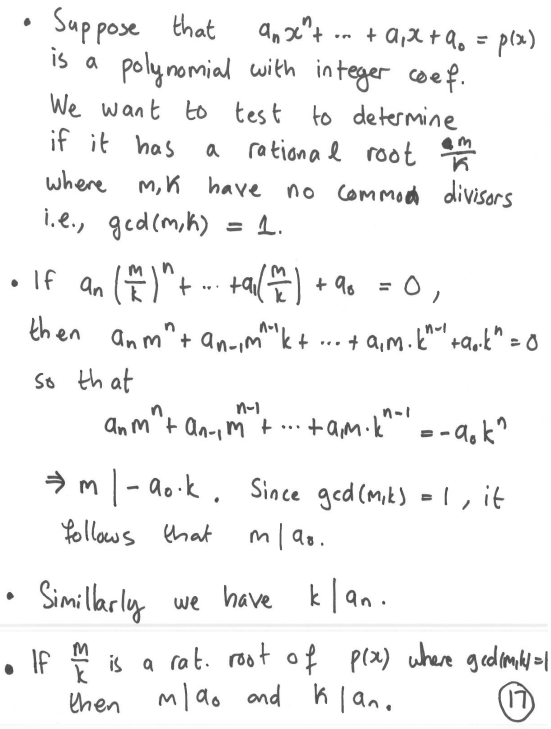 • Suppose that aₙxⁿ + ... + a₁x + a₀ = p(x)
is a polynomial with integer coef.
We want to test to determine
if it has a rational root m/k
where m,k have no common divisors
i.e., gcd(m,k) = 1.
• If aₙ(m/k)ⁿ + ... + a₁(m/k) + a₀ = 0,
then aₙmⁿ + aₙ₋₁mⁿ⁻¹k + ... + a₁m.kⁿ⁻¹ + a₀.kⁿ = 0
so that
aₙmⁿ + aₙ₋₁mⁿ⁻¹ + ... + a₁m.kⁿ⁻¹ = -a₀kⁿ
⇒ m | -a₀.k. Since gcd(m,k) = 1, it
follows that m | a₀.
• Simillarly we have k | aₙ.
• If m/k is a rat. root of p(x) where gcd(m,k)=1
then m | a₀ and k | aₙ. 17